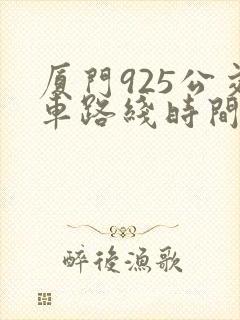 厦門925公交
車路綫時間
醉後漁歌